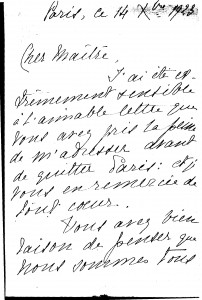 Paris, ce 14 Xbre 1923
Cher Maître,
J'ai été ex-
trêmement sensible
à l'aimable lettre que
vous avez pris la peine
de m'adresser avant
de quitter Paris : et je
vous en remercie de
tout cœur.
Vous avez bien
raison de penser que
nous sommes tous